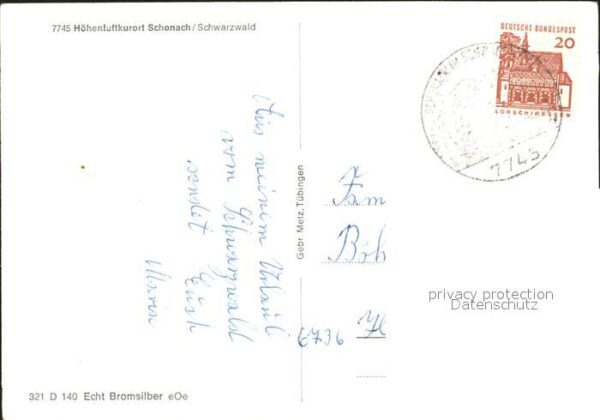 7745 Höhenluftkurort Schonach/Schwarzwald
DEUTSCHE BUNDESPOST
20
LORSCH/HESSEN
7745
Aus meinem Urlaub
vom Schwarzwald
sendet Euch
Maria
Gebr. Metz, Tübingen
Fam
Böh
6736 H
privacy protection
Datenschutz
321 D 140 Echt Bromsilber eOe